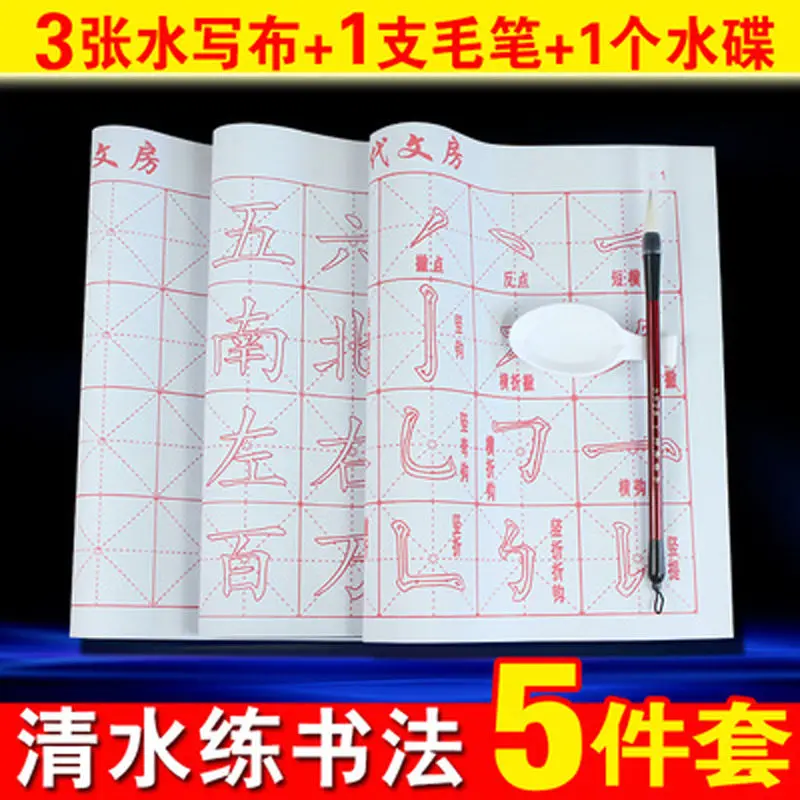 3张水写布+1支毛笔+1个水碟
文房
代文房
1
五 六
撇点 反点 短横
南 北
竖钩 横折撇 撇
左 右
竖弯钩 横折钩 横钩
百 万
竖折 竖折折钩 竖提
清水练书法 5件套